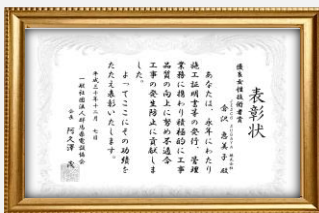 表彰状
優良女性技術者賞
金沢 恵美子 殿
あなたは、永年にわたり
施工証明書等の発行、管理
業務に携わり積極的に工事
品質の向上に努め不適合
工事の発生防止に貢献しま
した。
よってここにその功績を
たたえ表彰いたします。
平成三十年十二月 七日
一般社団法人群馬県電設協会
会長 阿久澤 茂